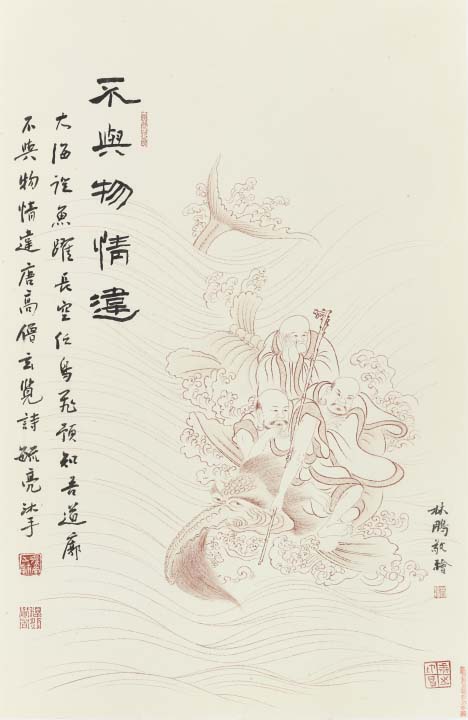 不與物情違
大海從魚躍長空任鳥飛預知吾道廓
不與物情違唐高僧玄覽詩毓亮沐手
林鵬敬繪